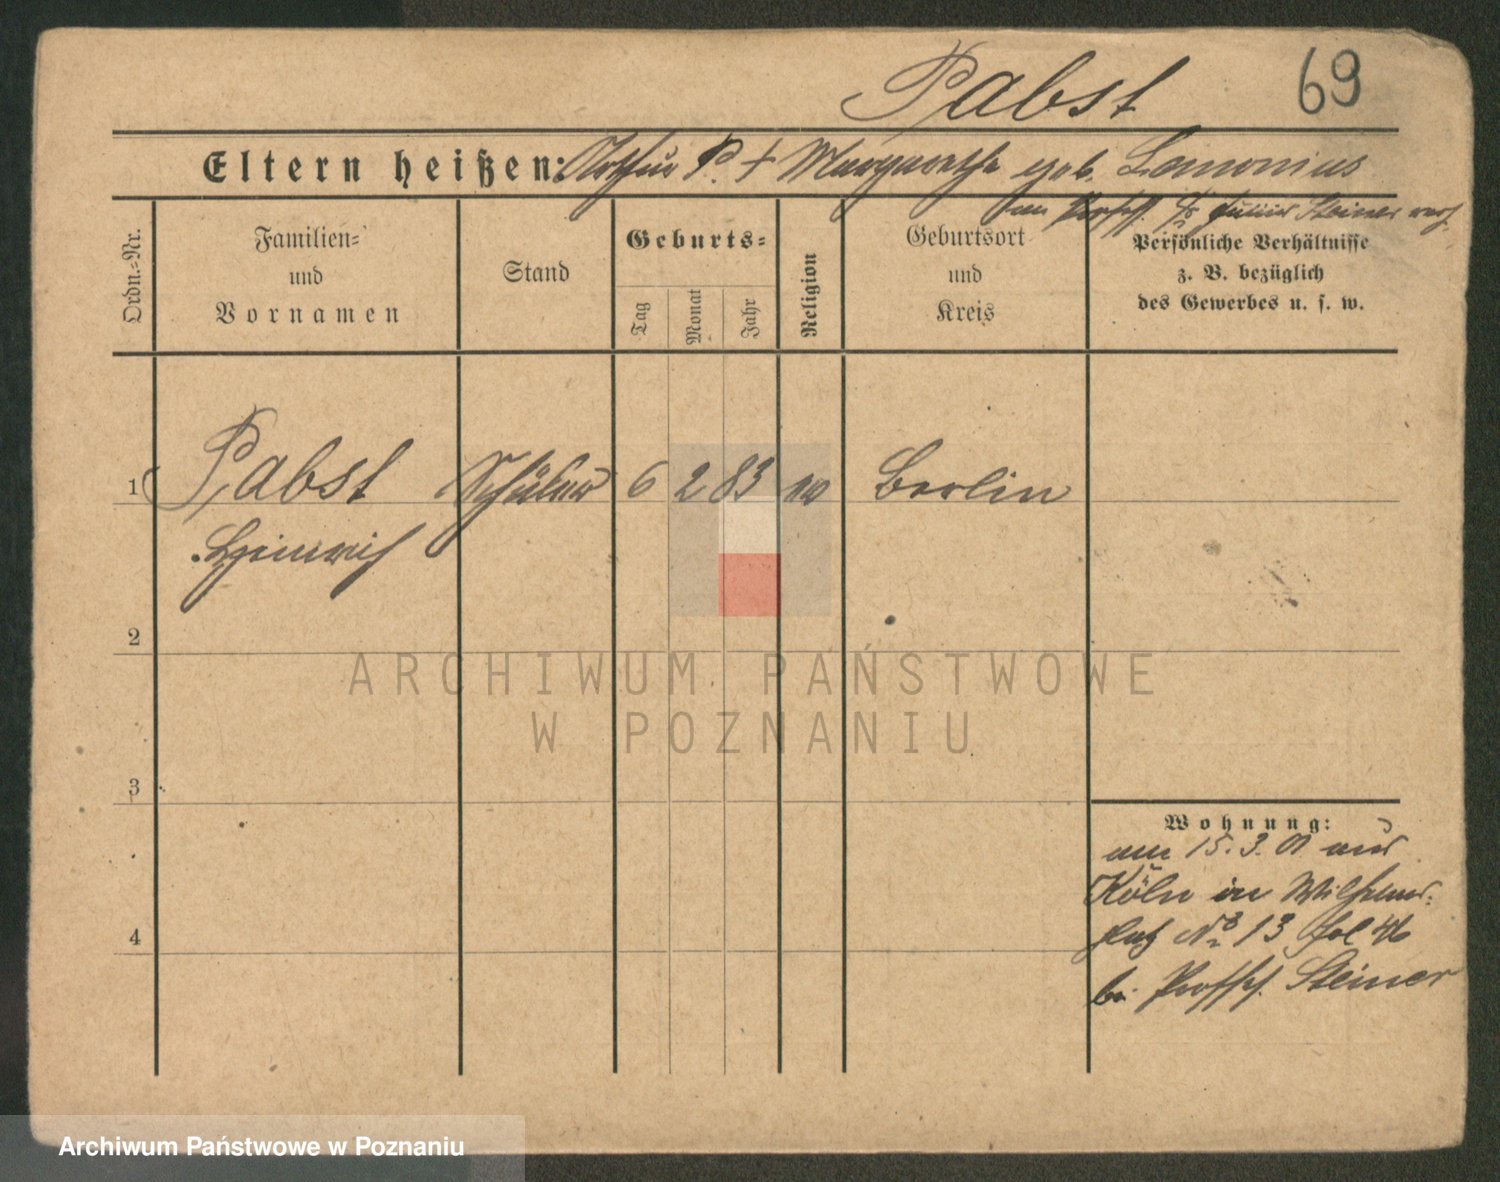 Pabst 69
Eltern heißen: Arthur P. † Margarethe geb. Lemonius
an Professor Julius Steiner verh.
Ordn.-Nr.
Familien=
und
Vornamen
Stand
Geburts=
Tag
Monat
Jahr
Religion
Geburtsort
und
Kreis
Persönliche Verhältnisse
z. B. bezüglich
des Gewerbes u. s. w.
1 Pabst Schüler 6 2 83 Berlin
Heinrich
2
3
4
Wohnung:
am 15.3.01 aus
Köln in Wilhelms-
platz No 13
bei Steiner
ARCHIWUM PAŃSTWOWE
W POZNANIU
Archiwum Państwowe w Poznaniu